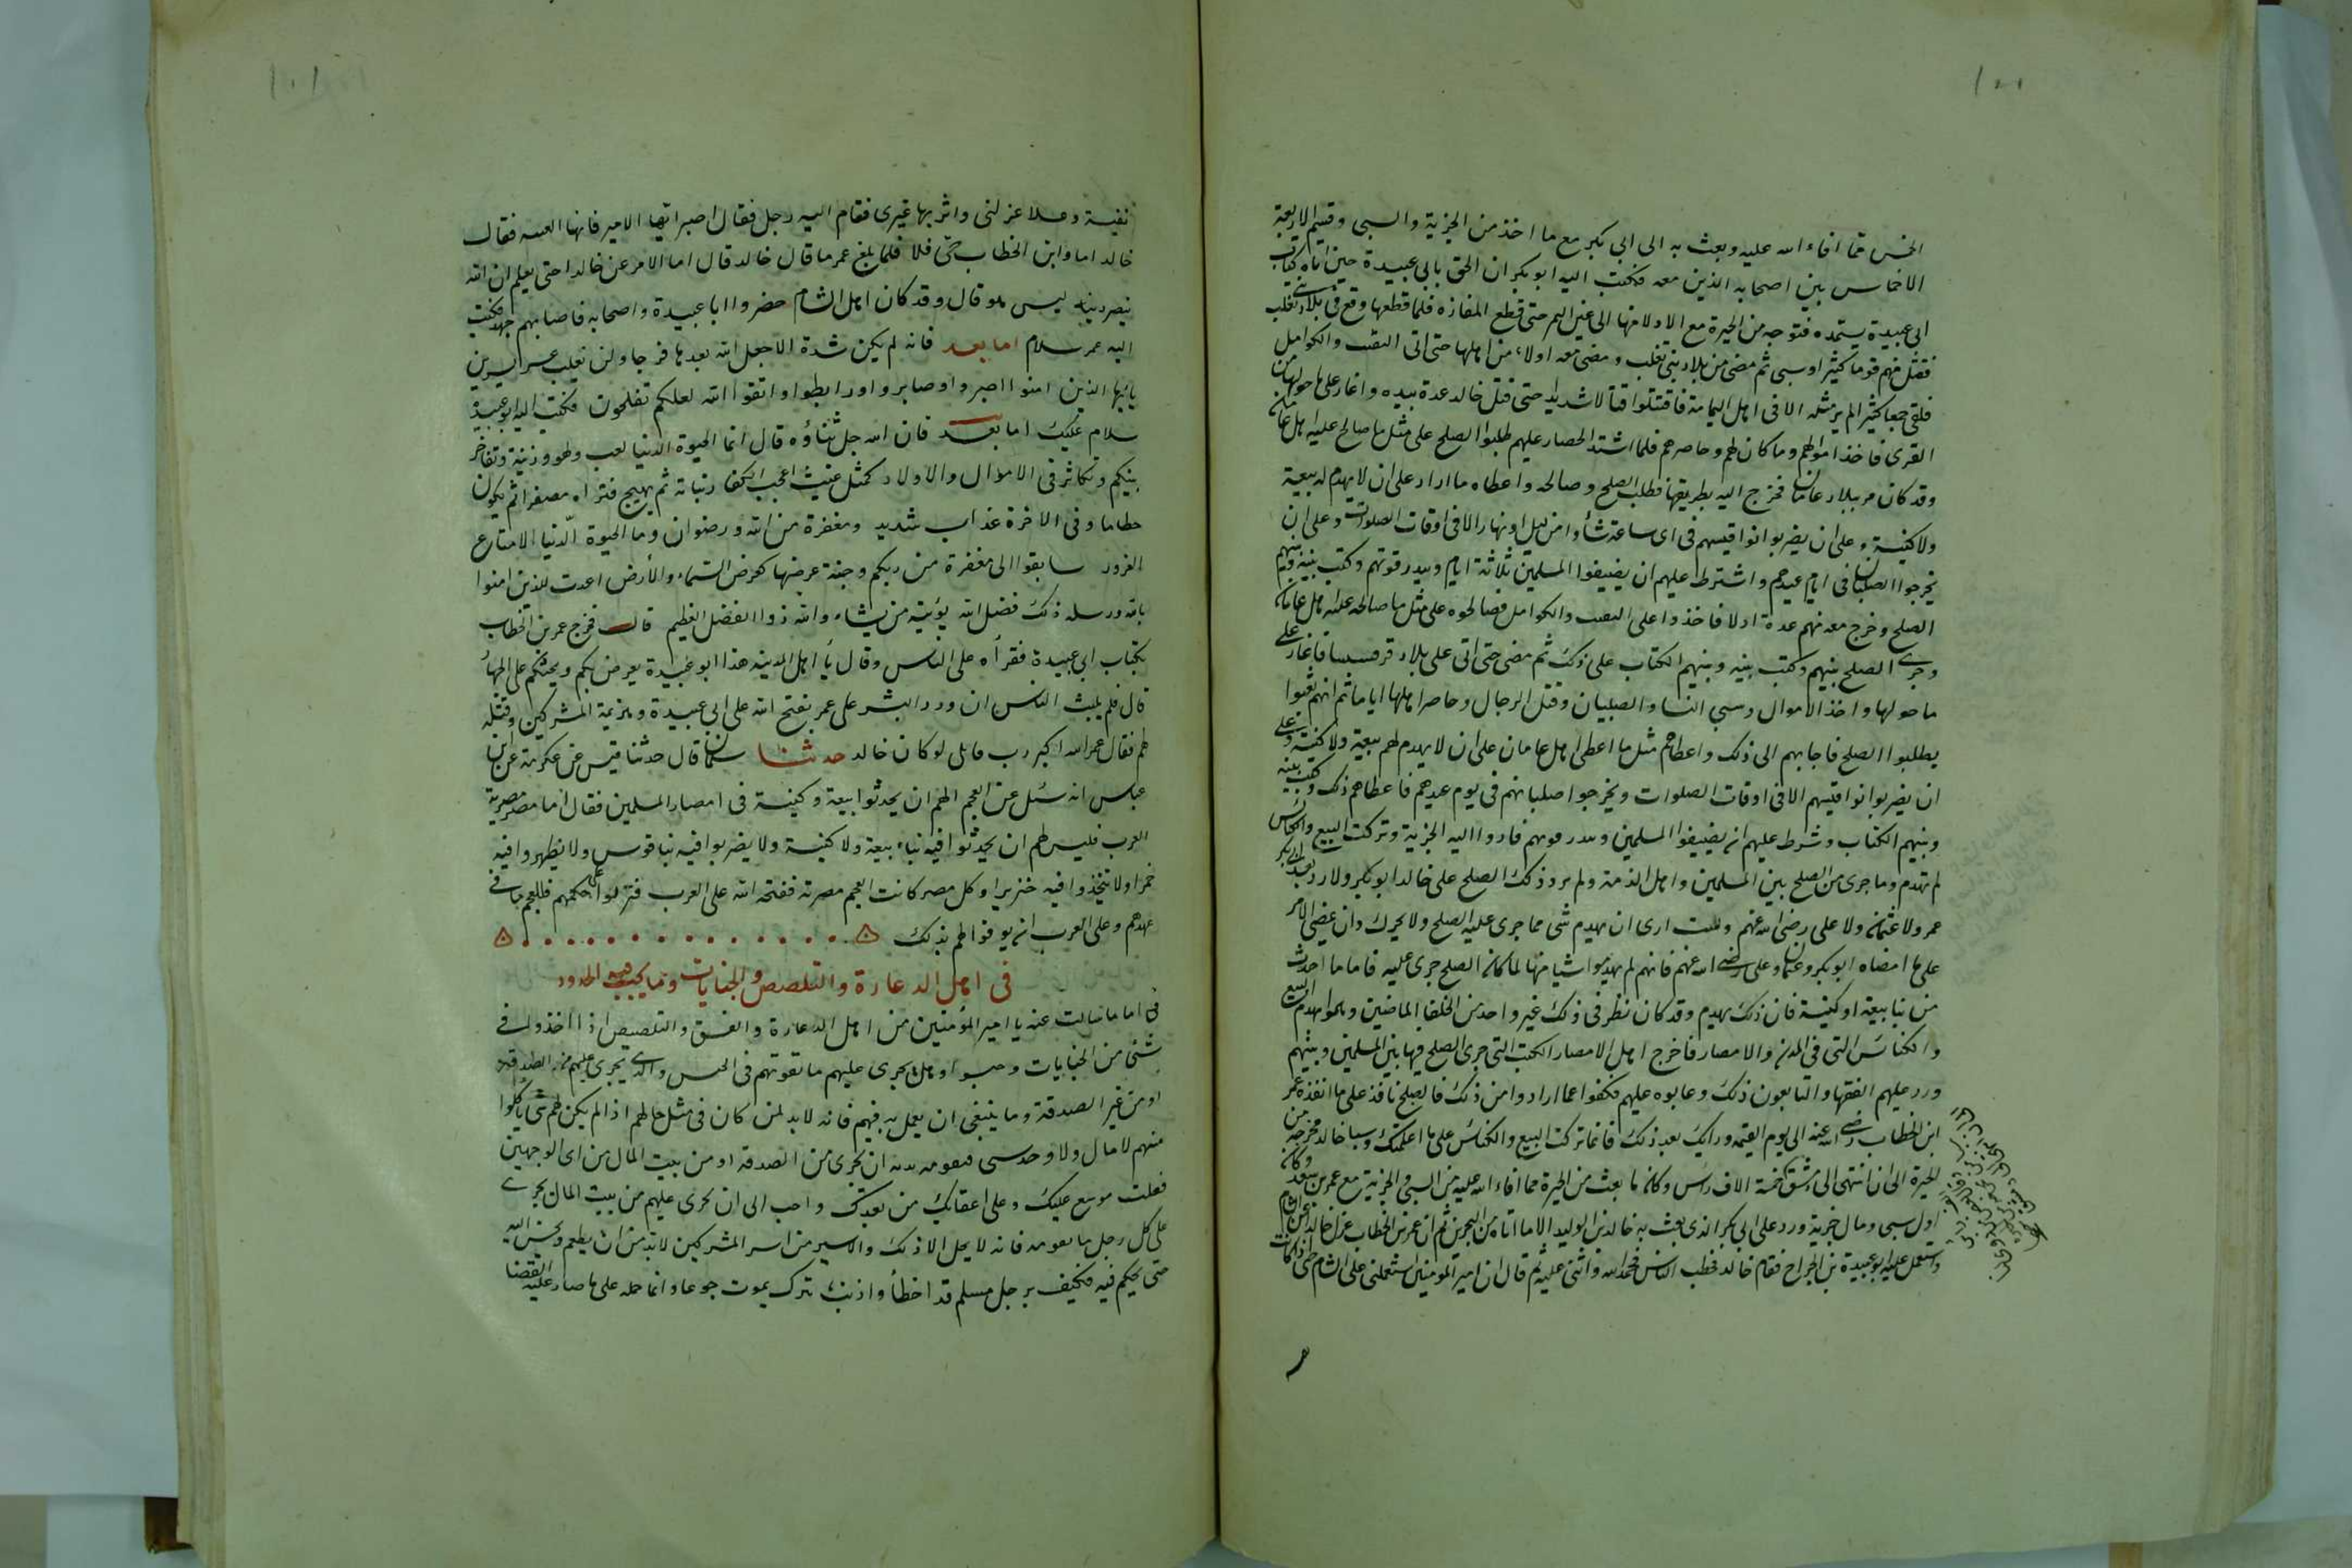 الخمس مما افاء الله عليه وبعث به الى ابى بكر مع ما اخذ من الجزية والسبى وقسم الاربعة
الاخماس بين اصحابه الذين معه فكتب اليه ابو بكر ان الحق بابى عبيدة حين اتاه كتاب
ابى عبيدة يستمده فتوجه من الحيرة مع الادلا منها الى عين التمر حتى قطع المفازه فلما قطعها وقع فى بلاد بنى تغلب
فقتل منهم قوما كثيرا وسبى ثم مضى من بلاد بنى تغلب ومضى معه ادلاء من اهلها حتى اتى النقيب والكوامل
فلقى جمعا كثيرا لم ير مثله الا فى اهل اليمامة فاقتتلوا قتالا شديدا حتى قتل خالد عدة بيده واغار على ما حولها من
القرى فاخذ اموالهم وما كان لهم وحاصرهم فلما اشتد الحصار عليهم طلبوا الصلح على مثل ما صالح عليه اهل عانات
وقد كان مر ببلاد عانات فخرج اليه بطريقها فطلب الصلح وصالحه واعطاه ما اراد على ان لا يهدم له بيعة
ولا كنيسة وعلى ان يضربوا نواقيسهم فى اى ساعة شأوا من ليل او نهار الا فى اوقات الصلوات وعلى ان
يخرجوا الصلبان فى ايام عيدهم واشترط عليهم ان يضيفوا المسلمين ثلاثة ايام ويبدرقوهم وكتب بينه وبينهم
الصلح وخرج معه منهم عدة ادلا فاخذوا على النقيب والكوامل فصالحوه على مثل ما صالحه عليه اهل عانات
وجرى الصلح بينهم وكتب بينه وبينهم الكتاب على ذلك ثم مضى حتى اتى على بلاد قرقيسا فاغار على
ما حولها واخذ الاموال وسبى النسا والصبيان وقتل الرجال وحاصر اهلها اياما ثم انهم بعثوا
يطلبوا الصلح فاجابهم الى ذلك واعطاهم مثل ما اعطى اهل عامان على ان لا يهدم لهم بيعة ولا كنيسة وعلى
ان يضربوا نواقيسهم الا فى اوقات الصلوات ويخرجوا صلبانهم فى يوم عيدهم فاعطاهم ذلك وكتب بينه
وبينهم الكتاب وشرط عليهم ان يضيفوا المسلمين ويبدرقوهم فادوا اليه الجزية وتركت البيع والكنائس
لم تهدم وما جرى من الصلح بين المسلمين واهل الذمة ولم يرد ذلك الصلح على خالد ابو بكر ولا رده بعد ابى بكر
عمر ولا عثمان ولا على رضى الله عنهم ولست ارى ان يهدم شى مما جرى عليه الصلح ولا يحول وان يمضى الامر
على ما امضاه ابو بكر وعثمان وعلى رضى الله عنهم فانهم لم يهدموا شيا منها لما كان الصلح جرى عليه فاما ما احدث
من بنا بيعة او كنيسة فان ذلك يهدم وقد كان نظر فى ذلك غير واحد من الخلفا الماضين وهموا بهدم البيع
والكنائس التى فى المدن والامصار فاخرج اهل الامصار الكتب التى جرى الصلح فيها بين المسلمين وبينهم
ورد عليهم الفقها والتابعون ذلك وعابوه عليهم فكفوا عما ارادوا من ذلك فالصلح نافذ على ما انفذه عمر
ابن الخطاب رضى الله عنه الى يوم القيمه ورايك بعد ذلك فانما تركت البيع والكنائس على ما اعلمتك وسبا خالد من مخرجه من
الحيرة الى ان انتهى الى دمشق خمسة الاف راس وكان ما بعث من الحيرة مما افاء الله عليه من السبى والجزية مع عمر بن سعد وكان
اول سبى ومال جزية ورد على ابى بكر الذى بعث به خالد بن الوليد الا ما اتاه من البحرين ثم ان عمر بن الخطاب عزل خالدا عن الشام
واستعمل عليه ابو عبيدة بن الجراح فقام خالد فخطب الناس فحمد الله واثنى عليه ثم قال ان امير المومنين استعملنى على الشام حتى اذا كانت
نفيسة وعسلا عزلنى واثر بها غيرى فقام اليه رجل فقال اصبر ايها الامير فانها الفتنه فقال
خالد اما وابن الخطاب حى فلا فلما بلغ عمر ما قال خالد قال اما لانزعن خالدا حتى يعلم ان الله
ينصر دينه ليس هو قال وقد كان اهل الشام حضروا ابا عبيدة واصحابه فاصابهم جهد فكتب
اليه عمر سلام اما بعد فانه لم يكن شدة الا جعل الله بعدها فرجا ولن يغلب عسر يسرين
يا ايها الذين امنوا اصبروا وصابروا ورابطوا واتقوا الله لعلكم تفلحون فكتب اليه ابو عبيدة
سلام عليك اما بعد فان الله جل ثناؤه قال انما الحيوة الدنيا لعب ولهو وزينة وتفاخر
بينكم وتكاثر فى الاموال والاولاد كمثل غيث اعجب الكفار نباته ثم يهيج فتراه مصفرا ثم يكون
حطاما وفى الاخرة عذاب شديد ومغفرة من الله ورضوان وما الحيوة الدنيا الا متاع
الغرور سابقوا الى مغفرة من ربكم وجنة عرضها كعرض السماء والارض اعدت للذين امنوا
بالله ورسله ذلك فضل الله يؤتيه من يشاء والله ذوا الفضل العظيم قال فخرج عمر بن الخطاب
بكتاب ابى عبيدة فقرأه على الناس وقال يا اهل المدينه هذا ابو عبيدة يعرض بكم ويحثكم على الجهاد
قال فلم يلبث الناس ان ورد البشر على عمر بفتح الله على ابى عبيدة وهزيمة المشركين وقتله
لهم فقال عمر الله اكبر رب قائل لو كان خالد حدثنا سلمان قال حدثنا قيس عن عكرمة عن ابن
عباس انه سئل عن العجم الهم ان يحدثوا بيعة وكنيسة فى امصار المسلمين فقال اما مصر مصرته
العرب فليس لهم ان يحدثوا فيه بناء بيعة ولا كنيسة ولا يضربوا فيه بناقوس ولا يظهروا فيه
خمرا ولا يتخذوا فيه خنزيرا وكل مصر كانت العجم مصرته ففتحه الله على العرب فنزلوا على حكمهم فللعجم ما فى
عهدهم وعلى العرب ان يوفوا لهم بذلك
فى اهل الدعارة والتلصص والجنايات وما يجب فيه الحدود
اما ما سالت عنه يا امير المؤمنين من اهل الدعارة والفسق والتلصص اذا اخذوا فى
شئ من الجنايات وحبسوا وهل يجرى عليهم ما يقوتهم فى الحبس والذى يجرى عليهم من الصدقة
او من غير الصدقة وما ينبغى ان يعمل به فيهم فانه لابد لمن كان فى مثل حالهم اذا لم يكن لهم شى ياكلوا
منهم لا مال ولا وجد شى يقوم به بدنه ان يجرى من الصدقه او من بيت المال من اى الوجهين
فعلت موسع عليك وعلى اعقابك من بعدك واحب الى ان يجرى عليهم من بيت المال يجرى
على كل رجل ما يقوته فانه لا يحل الا ذلك والاسير من اسر المشركين لابد من ان يطعم ويحسن اليه
حتى يحكم فيه فكيف برجل مسلم قد اخطأ واذنب يترك يموت جوعا وانما حمله على ما صار عليه القضا